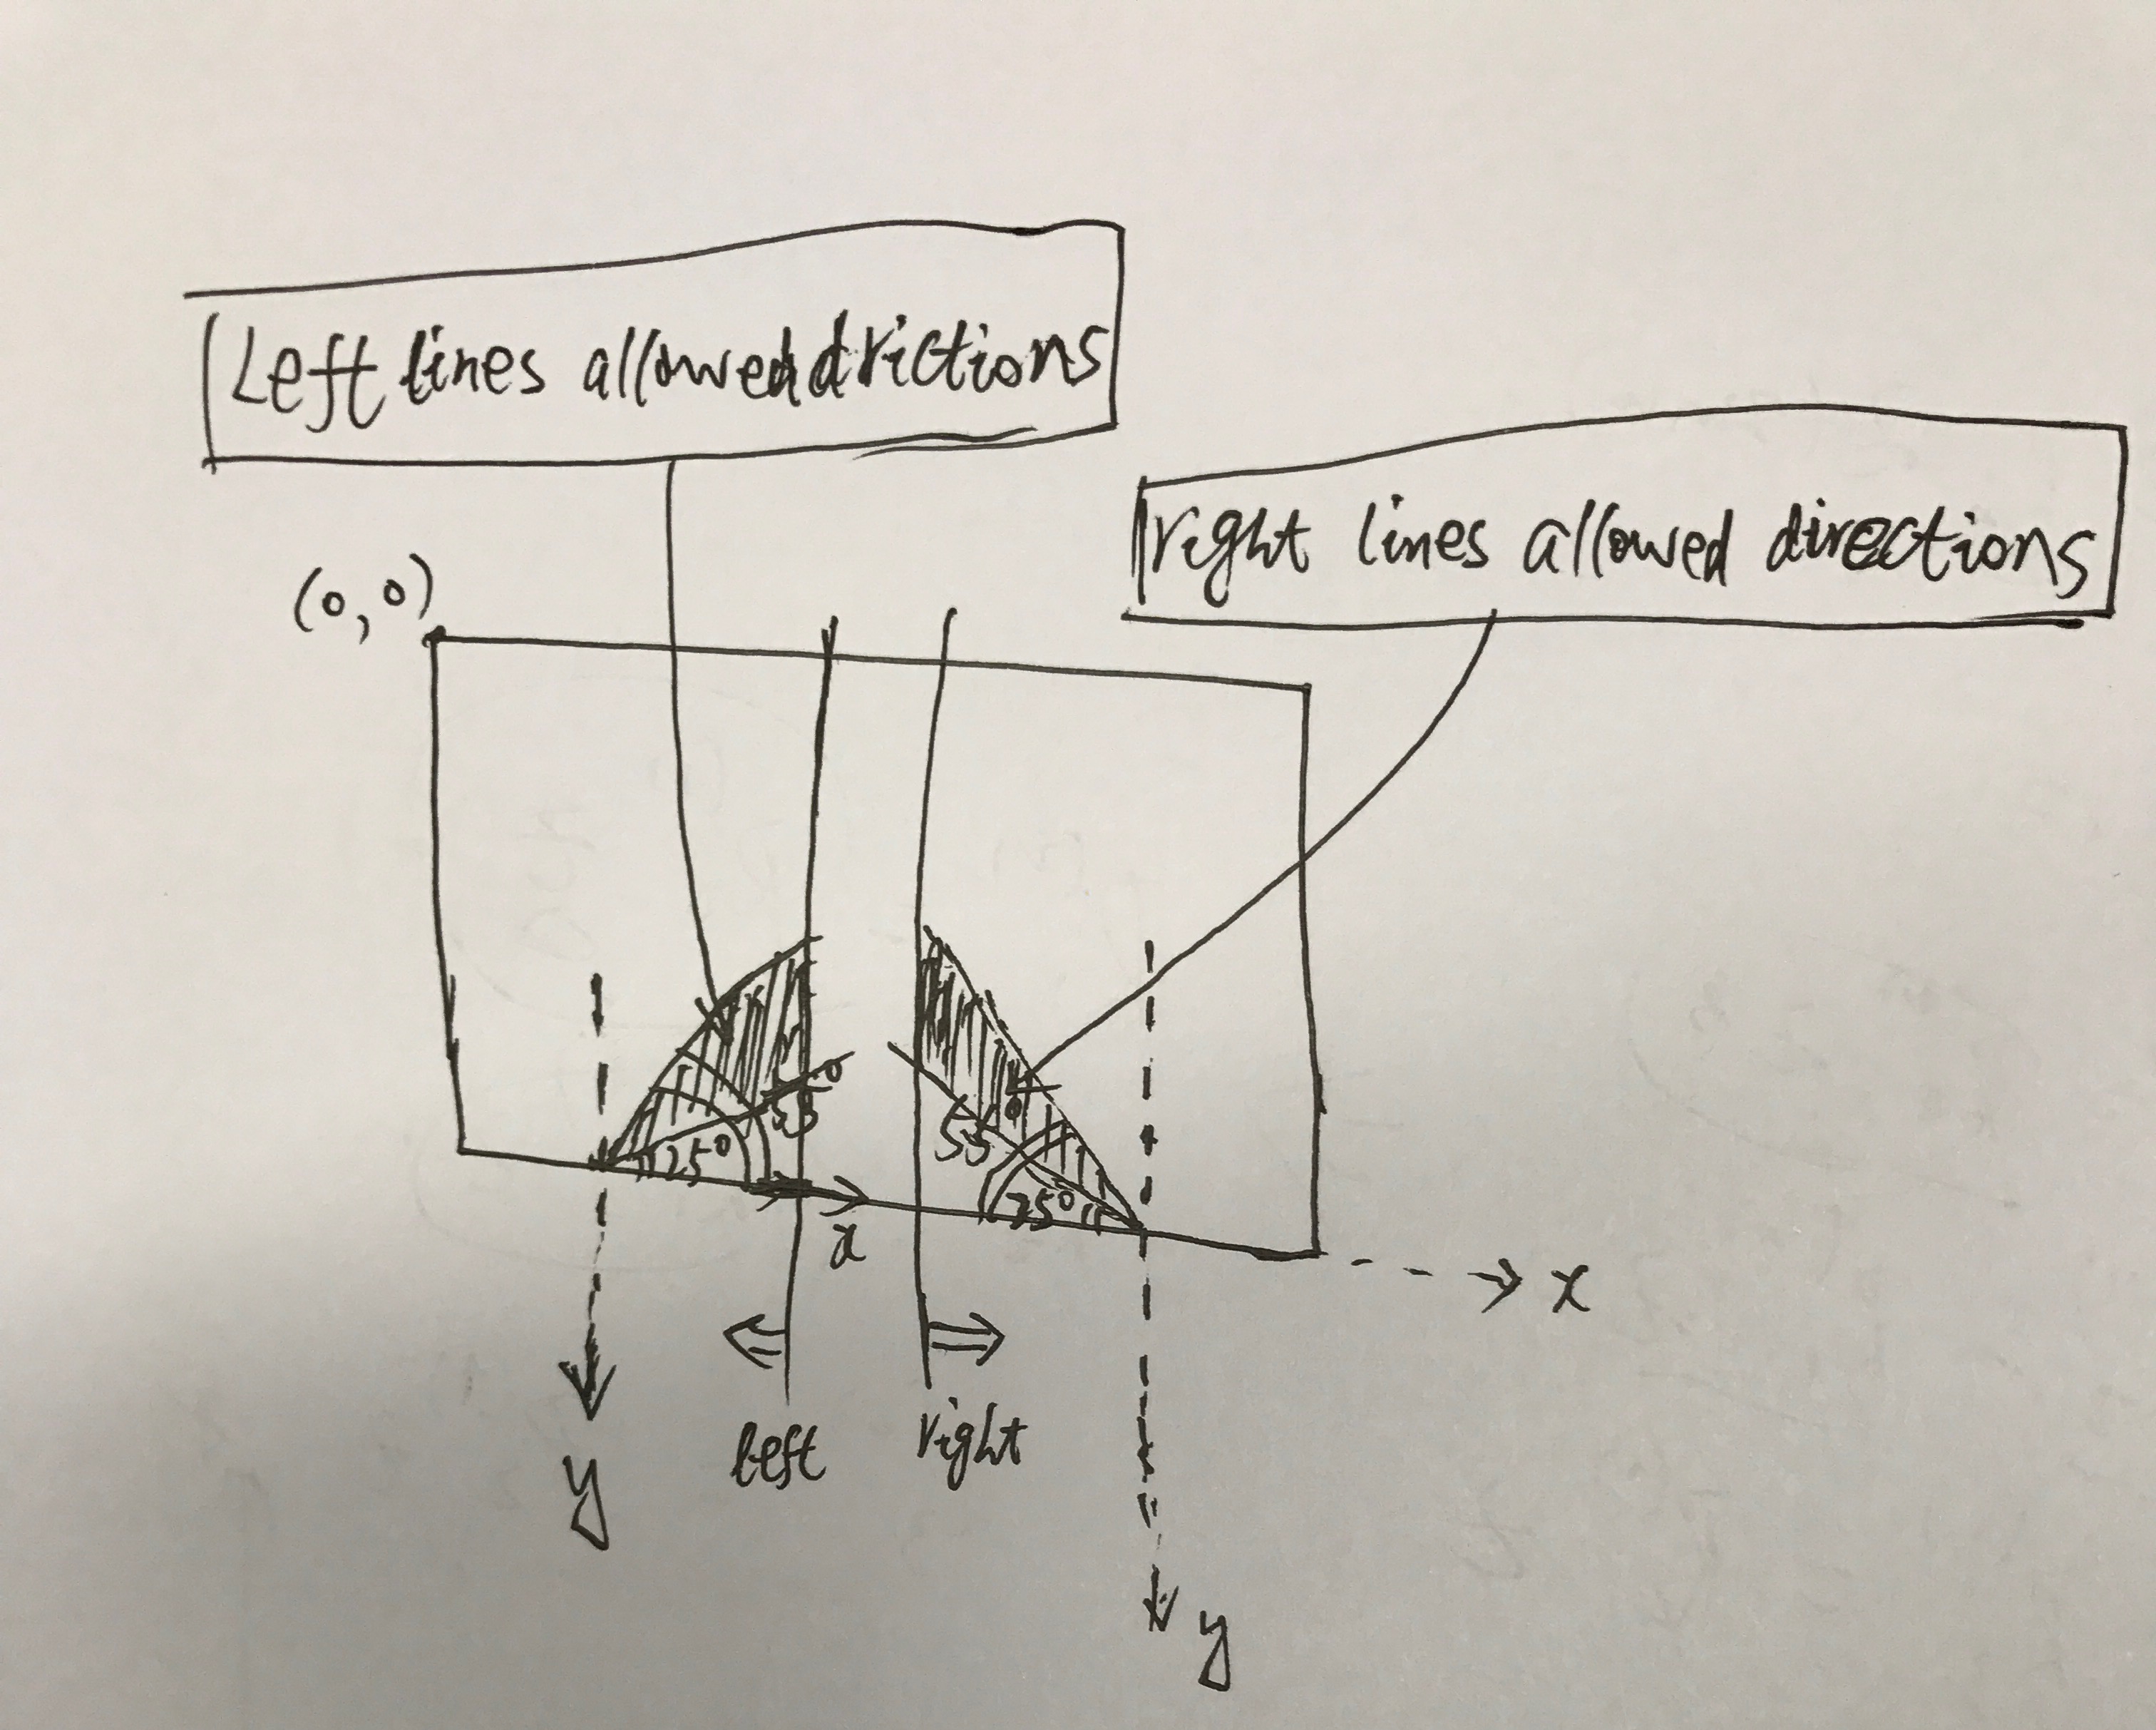 Left lines allowed drictions
right lines allowed directions
(0,0)
55°
25°
55°
25°
x
x
left
right
y
y